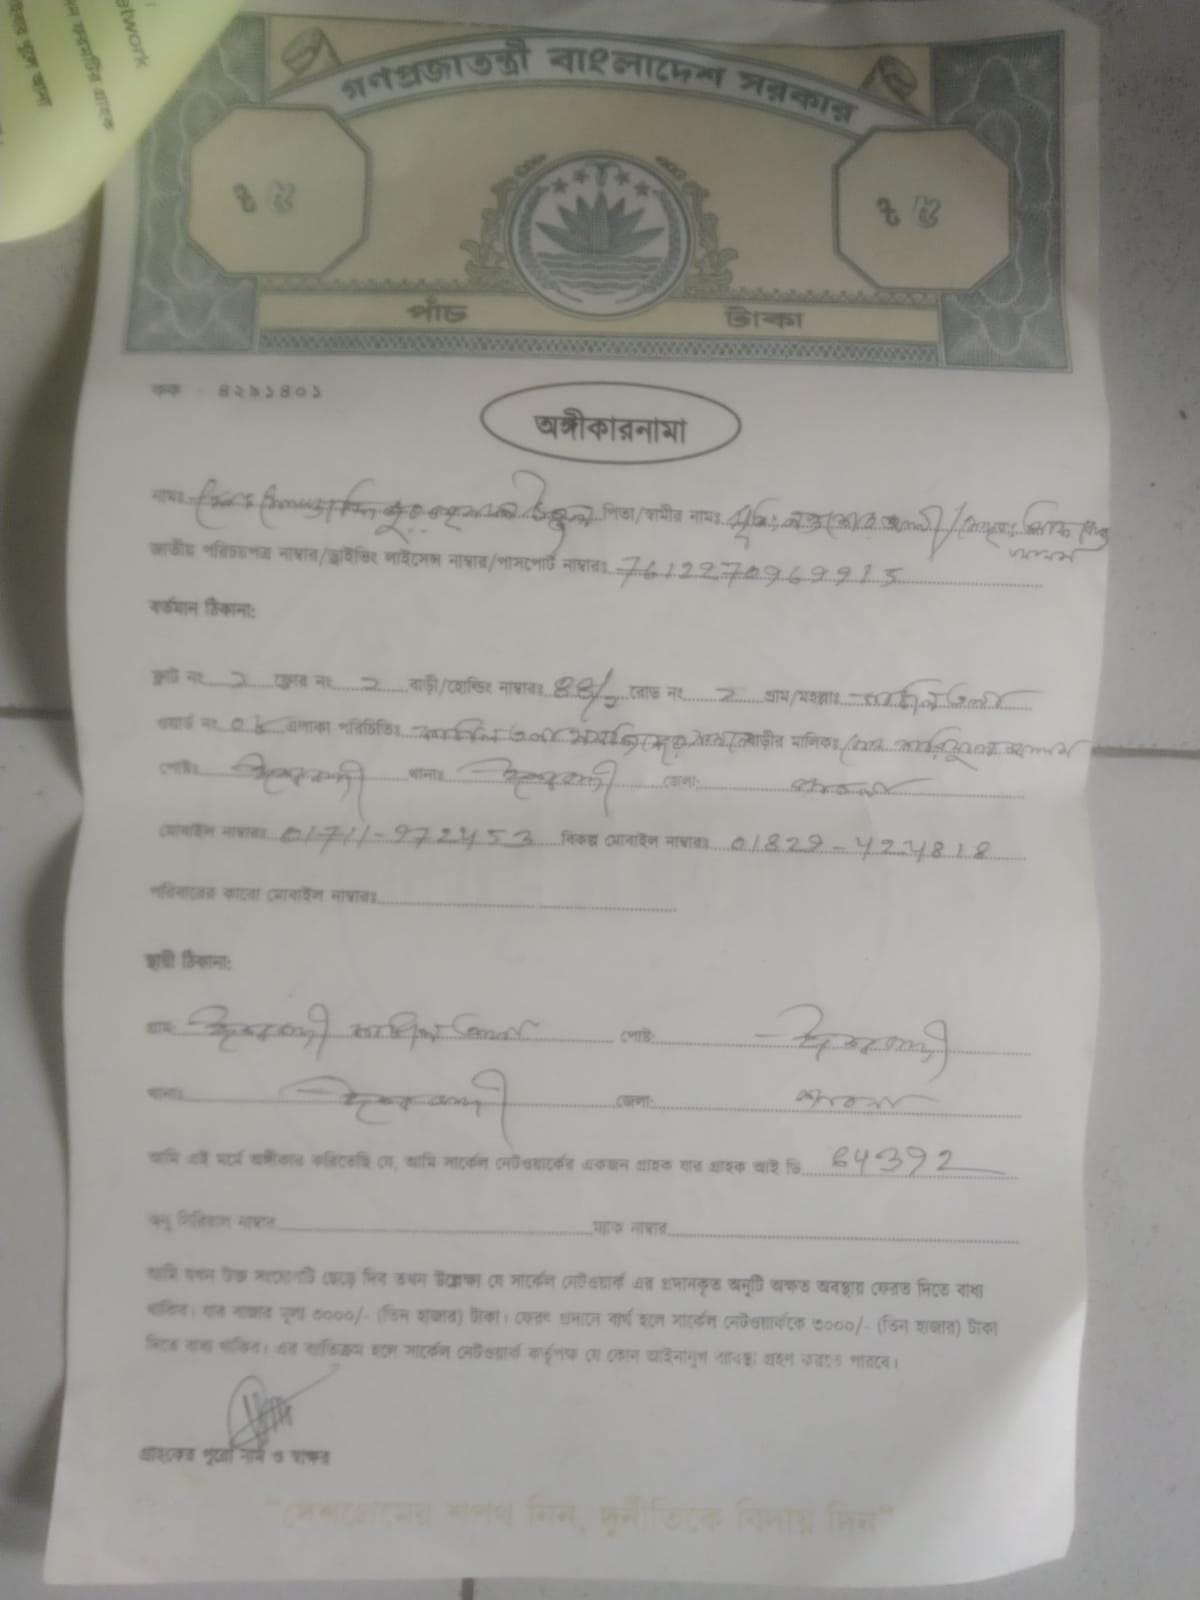 twork
গণপ্রজাতন্ত্রী বাংলাদেশ সরকার
৳ ৫ ৳ ৫
পাঁচ টাকা
কক ৪২৯১৪০১
অঙ্গীকারনামা
নামঃ পিতা/স্বামীর নামঃ
জাতীয় পরিচয়পত্র নাম্বার/ড্রাইভিং লাইসেন্স নাম্বার/পাসপোর্ট নাম্বারঃ 7612270969915
বর্তমান ঠিকানা:
ফ্লাট নং ২ ফ্লোর নং ২ বাড়ী/হোল্ডিং নাম্বারঃ রোড নং ২ গ্রাম/মহল্লাঃ
ওয়ার্ড নং এলাকা পরিচিতিঃ বাড়ীর মালিকঃ
পোষ্টঃ ঈশ্বরদী থানাঃ ঈশ্বরদী জেলা: পাবনা
মোবাইল নাম্বারঃ 01711-972453 বিকল্প মোবাইল নাম্বারঃ 01829-424818
পরিবারের কারো মোবাইল নাম্বারঃ
স্থায়ী ঠিকানা:
গ্রাম: ঈশ্বরদী পোষ্ট: ঈশ্বরদী
থানাঃ ঈশ্বরদী জেলা: পাবনা
আমি এই মর্মে অঙ্গীকার করিতেছি যে, আমি সার্কেল নেটওয়ার্কের একজন গ্রাহক যার গ্রাহক আই ডি 64392
অনু সিরিয়াল নাম্বার ম্যাক নাম্বার
আমি যখন উক্ত সংযোগটি ছেড়ে দিব তখন উল্লেখ্য যে সার্কেল নেটওয়ার্ক এর প্রদানকৃত অনুটি অক্ষত অবস্থায় ফেরত দিতে বাধ্য
থাকিব। যার বাজার মূল্য ৩০০০/- (তিন হাজার) টাকা। ফেরৎ প্রদানে ব্যর্থ হলে সার্কেল নেটওয়ার্ককে ৩০০০/- (তিন হাজার) টাকা
দিতে বাধ্য থাকিব। এর ব্যতিক্রম হলে সার্কেল নেটওয়ার্ক কর্তৃপক্ষ যে কোন আইনানুগ ব্যবস্থা গ্রহণ করতে পারবে।
গ্রাহকের পুরো নাম ও স্বাক্ষর
“দেশপ্রেমের শপথ নিন, দুর্নীতিকে বিদায় দিন”